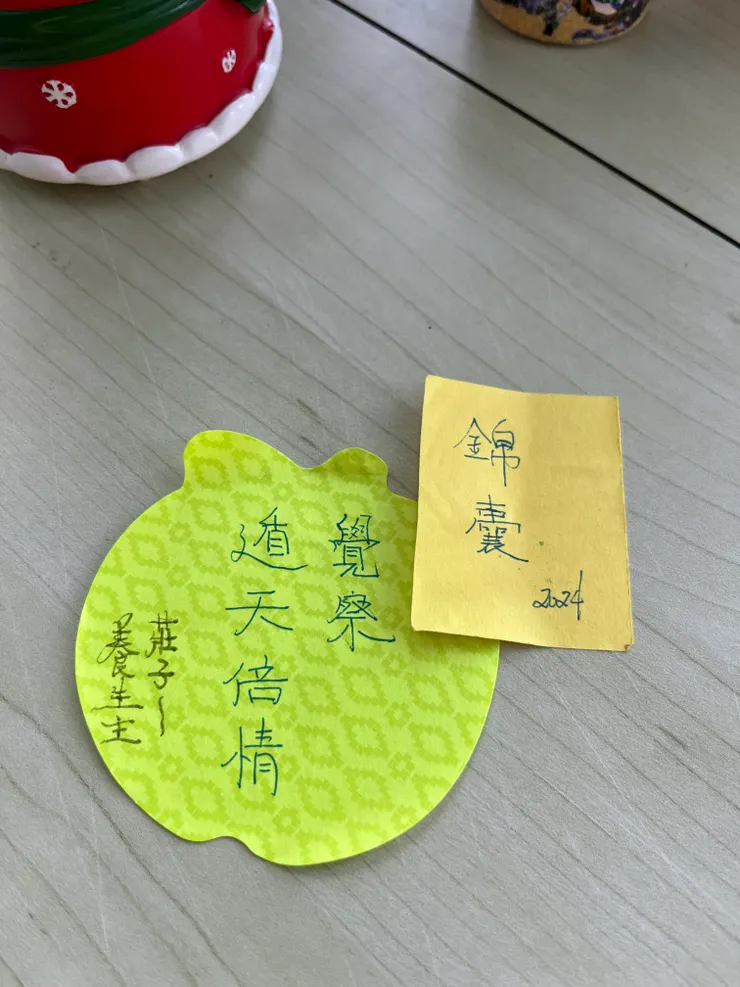 錦囊
2024
覺察
遁天倍情
莊子~
養生主